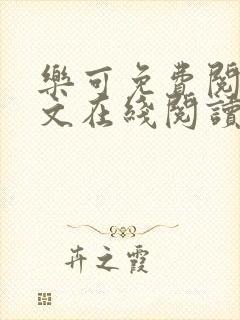 樂可免費閱
文在綫閱讀
卉之霞